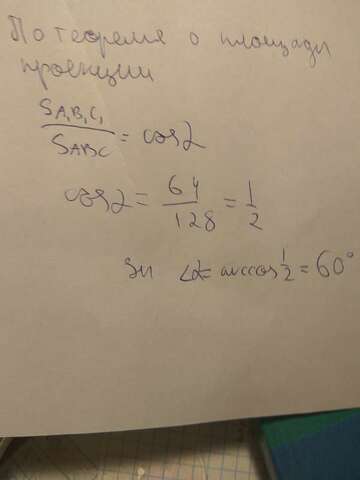 По теореме о площади
проекции
S_{A₁B₁C₁} / S_{ABC} = cos α
cos α = 64/128 = 1/2
∠α = arccos 1/2 = 60°